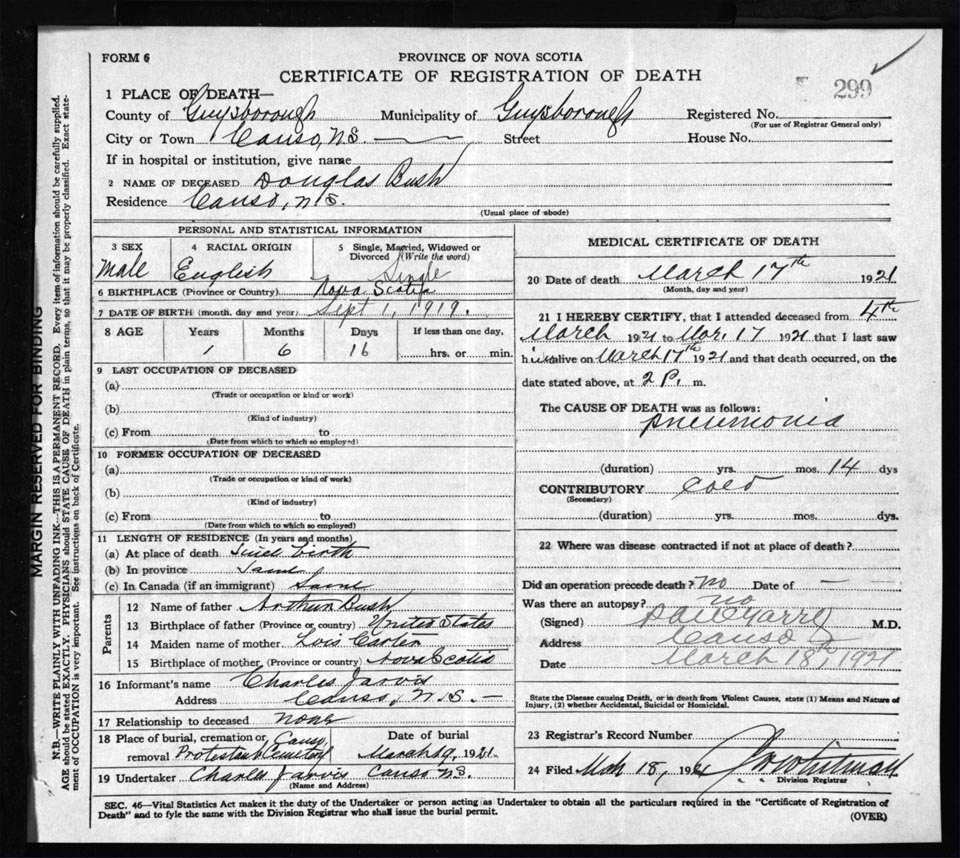 FORM 6
PROVINCE OF NOVA SCOTIA
CERTIFICATE OF REGISTRATION OF DEATH
299
1 PLACE OF DEATH—
County of Guysborough Municipality of Guysborough Registered No.
(For use of Registrar General only)
City or Town Canso, N.S. Street House No.
If in hospital or institution, give name
2 NAME OF DECEASED Douglas Bush
Residence Canso, N.S.
(Usual place of abode)
PERSONAL AND STATISTICAL INFORMATION
3 SEX Male
4 RACIAL ORIGIN English
5 Single, Married, Widowed or Divorced (Write the word) Single
6 BIRTHPLACE (Province or Country) Nova Scotia
7 DATE OF BIRTH (month, day and year) Sept 1, 1919.
8 AGE Years Months Days If less than one day,
1 6 16 hrs. or min.
9 LAST OCCUPATION OF DECEASED
(a)
(Trade or occupation or kind or work)
(b)
(Kind of industry)
(c) From to
(Date from which to which so employed)
10 FORMER OCCUPATION OF DECEASED
(a)
(Trade or occupation or kind of work)
(b)
(Kind of industry)
(c) From to
(Date from which to which so employed)
11 LENGTH OF RESIDENCE (In years and months)
(a) At place of death Since birth
(b) In province Same
(c) In Canada (if an immigrant) Same
Parents
12 Name of father Arthur Bush
13 Birthplace of father (Province or country) United States
14 Maiden name of mother Lois Carter
15 Birthplace of mother (Province or country) Nova Scotia
16 Informant's name Charles Jarvis
Address Canso, N.S.
17 Relationship to deceased none
18 Place of burial, cremation or removal Canso Protestant Cemetery
Date of burial
March 19, 1921.
19 Undertaker Charles Jarvis Canso N.S.
(Name and Address)
MEDICAL CERTIFICATE OF DEATH
20 Date of death March 17th 1921
(Month, day and year)
21 I HEREBY CERTIFY, that I attended deceased from 4th
March 1921 to Mar. 17 1921 that I last saw
him alive on March 17th 1921 and that death occurred, on the
date stated above, at 2 P. m.
The CAUSE OF DEATH was as follows:
Pneumonia
(duration) yrs. mos. 14 dys
CONTRIBUTORY Cold
(Secondary)
(duration) yrs. mos. dys.
22 Where was disease contracted if not at place of death?
Did an operation precede death? No Date of —
Was there an autopsy? no
(Signed) M.D.
Address Canso
Date March 18th, 1921
State the Disease causing Death, or in death from Violent Causes, state (1) Means and Nature of
Injury, (2) whether Accidental, Suicidal or Homicidal.
23 Registrar's Record Number
24 Filed Mch 18, 1921 Whitman
Division Registrar
SEC. 46—Vital Statistics Act makes it the duty of the Undertaker or person acting as Undertaker to obtain all the particulars required in the "Certificate of Registration of
Death" and to fyle the same with the Division Registrar who shall issue the burial permit.
(OVER)
MARGIN RESERVED FOR BINDING
N.B.—WRITE PLAINLY WITH UNFADING INK—THIS IS A PERMANENT RECORD. Every item of information should be carefully supplied.
AGE should be stated EXACTLY. PHYSICIANS should STATE CAUSE OF DEATH in plain terms, so that it may be properly classified. Exact state-
ment of OCCUPATION is very important. See instructions on back of Certificate.